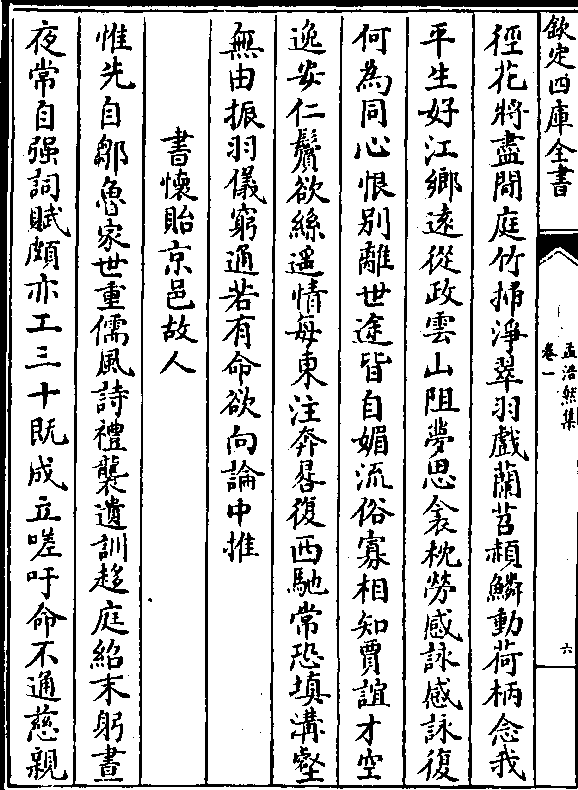 欽定四庫全書
孟浩然集
卷一
六
徑花將盡閒庭竹掃淨翠羽戲蘭苕赬鱗動荷柄念我
平生好江鄉遠從政雲山阻夢思衾枕勞感詠感詠復
何為同心恨别離世途皆自媚流俗寡相知賈誼才空
逸安仁鬢欲絲遥情每東注奔晷復西馳常恐填溝壑
無由振羽儀窮通若有命欲向論中推
書懷貽京邑故人
惟先自鄒魯家世重儒風詩禮襲遺訓趍庭紹末躬晝
夜常自强詞賦頗亦工三十既成立嗟吁命不通慈親